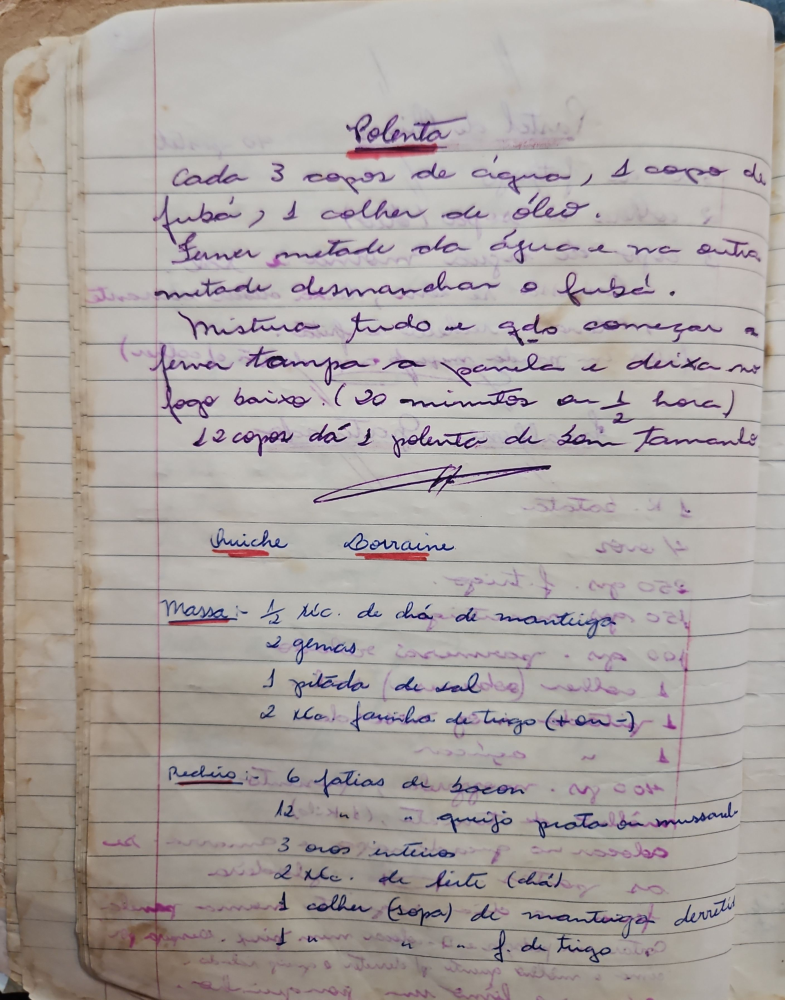 Polenta
Cada 3 copos de água, 1 copo de
fubá, 1 colher de óleo.
Ferver metade da água e na outra
metade desmanchar o fubá.
Mistura tudo e qdo começar a
ferver tampa a panela e deixa no
fogo baixo. (20 minutos ou 1/2 hora)
12 copos dá 1 polenta de bom tamanho
Quiche Lorraine
Massa:- 1/2 xíc. de chá de manteiga
2 gemas
1 pitada (de sal)
2 xíc. farinha de trigo (+ ou -)
Recheio:- 6 fatias de bacon
12 " " queijo prata ou mussarel
3 ovos inteiros
2 xíc. de leite (chá)
1 colher (sopa) de manteiga derretid
1 " " " f. de trigo